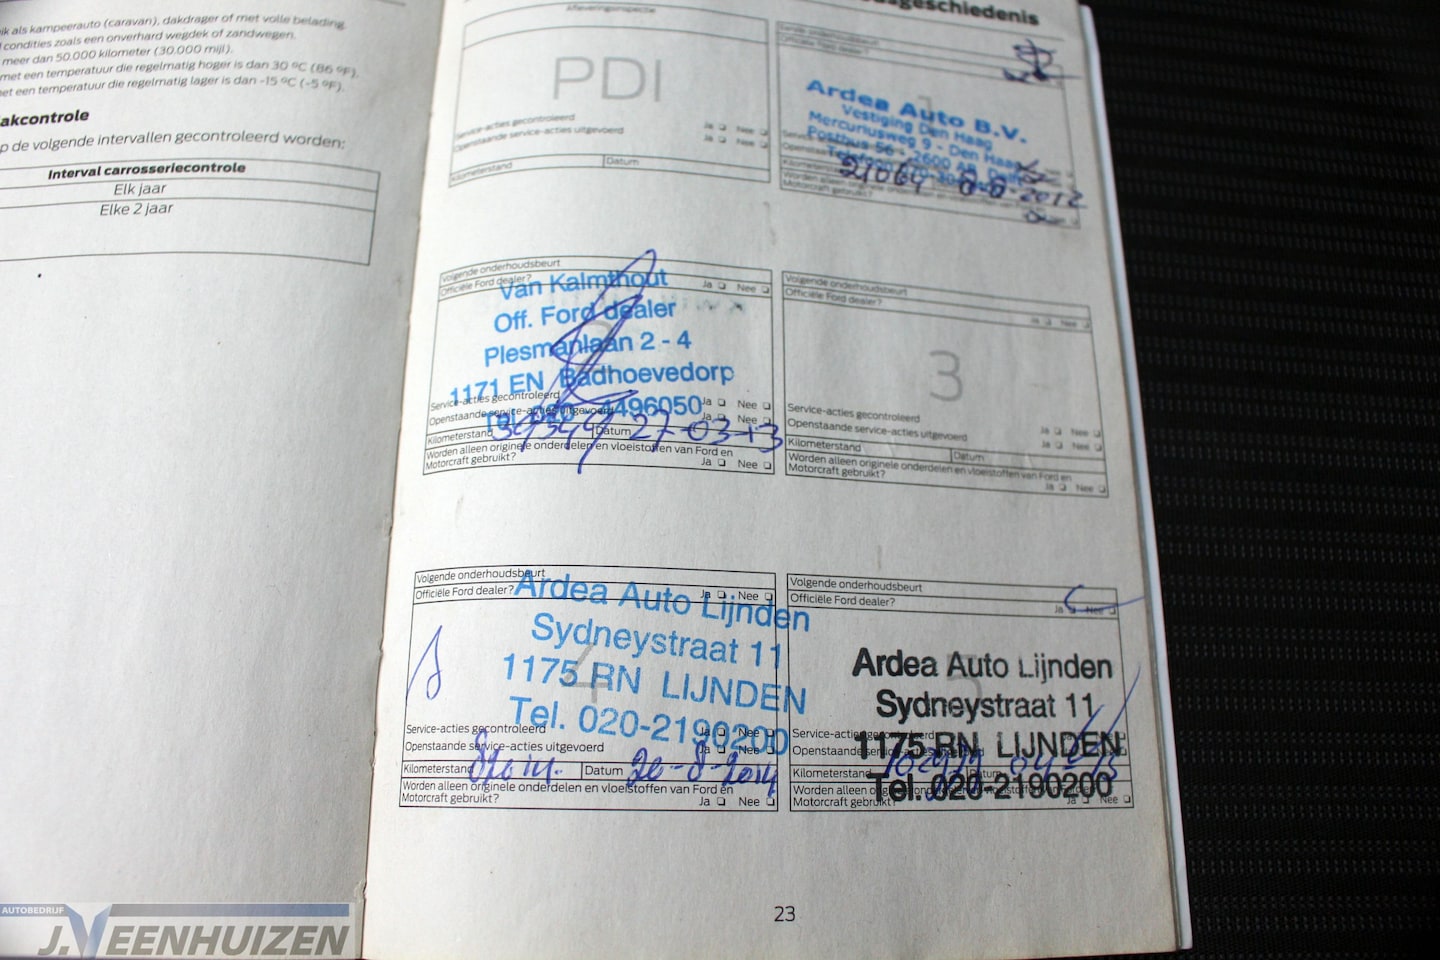 ik als kampeerauto (caravan), dakdrager of met volle belading.
condities zoals een onverhard wegdek of zandwegen.
meer dan 50.000 kilometer (30.000 mijl).
met een temperatuur die regelmatig hoger is dan 30 ºC (86 ºF).
et een temperatuur die regelmatig lager is dan -15 ºC (-5 ºF).
akcontrole
p de volgende intervallen gecontroleerd worden:
Interval carrosseriecontrole
Elk jaar
Elke 2 jaar
dsgeschiedenis
Afleveringsinspectie
PDI
Service-acties gecontroleerd Ja Nee
Openstaande service-acties uitgevoerd Ja Nee
Kilometerstand Datum
Eerste onderhoudsbeurt
Officiële Ford dealer?
1
Ardea Auto B.V.
Vestiging Den Haag
Mercuriusweg 9 - Den Haag
Postbus 56 - 2600 AB Delft
2012
Motorcraft gebruikt?
Volgende onderhoudsbeurt
Officiële Ford dealer? Ja Nee
2
Van Kalmthout
Off. Ford dealer
Plesmanlaan 2 - 4
1171 EN Badhoevedorp
4496050
Service-acties gecontroleerd Ja Nee
Openstaande service-acties uitgevoerd Ja Nee
Kilometerstand Datum 27-03-13
Worden alleen originele onderdelen en vloeistoffen van Ford en
Motorcraft gebruikt? Ja Nee
Volgende onderhoudsbeurt
Officiële Ford dealer?
Ja Nee
3
Service-acties gecontroleerd
Openstaande service-acties uitgevoerd Ja Nee
Ja Nee
Kilometerstand Datum
Worden alleen originele onderdelen en vloeistoffen van Ford en
Motorcraft gebruikt? Ja Nee
Volgende onderhoudsbeurt
Officiële Ford dealer? Ja Nee
4
Ardea Auto Lijnden
Sydneystraat 11
1175 RN LIJNDEN
Tel. 020-2190200
Service-acties gecontroleerd Ja Nee
Openstaande service-acties uitgevoerd Ja Nee
Kilometerstand Datum 20-8-2014
Worden alleen originele onderdelen en vloeistoffen van Ford en
Motorcraft gebruikt? Ja Nee
Volgende onderhoudsbeurt
Officiële Ford dealer? Ja Nee
5
Ardea Auto Lijnden
Sydneystraat 11
1175 RN LIJNDEN
Tel. 020-2190200
Service-acties gecontroleerd
Openstaande service-acties
Kilometerstand Datum
Worden alleen originele onderdelen en vloeistoffen van Ford en
Motorcraft gebruikt? Ja Nee
23
AUTOBEDRIJF
J.VEENHUIZEN